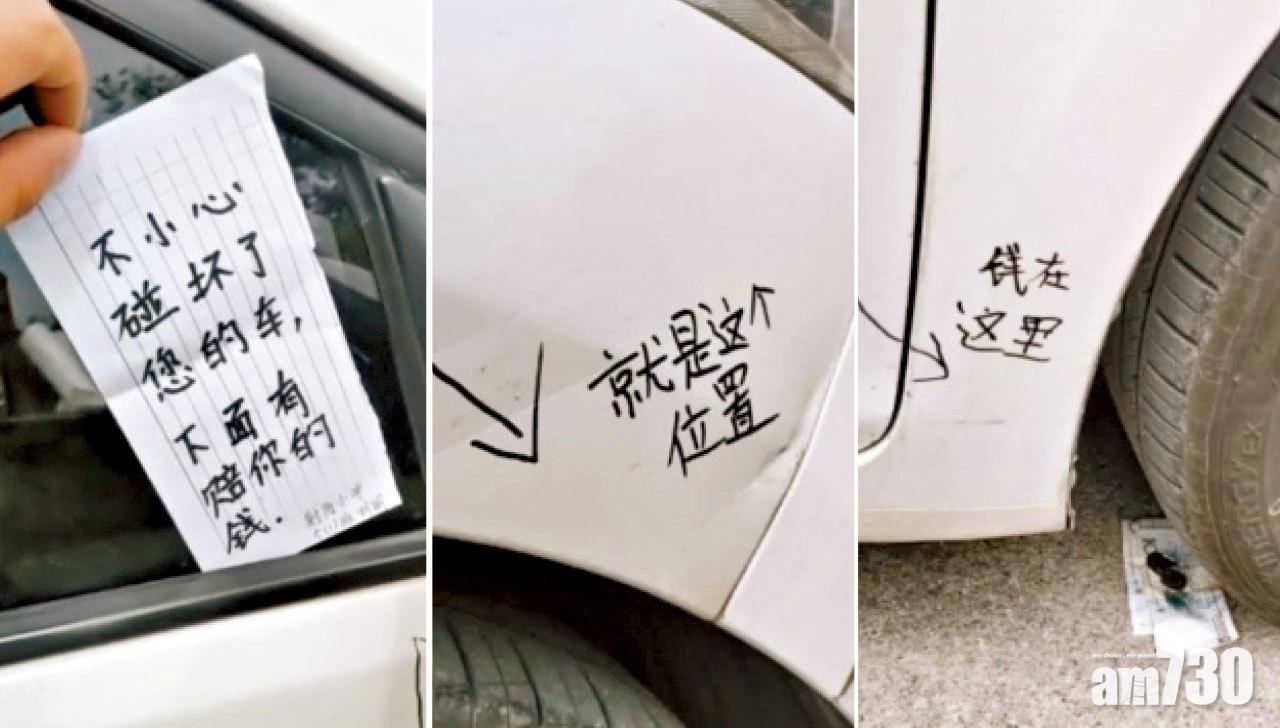 不小心
碰坏了
您的车,
下面有
赔你的
钱.
就是这个
位置
钱在
这里
my choice . my paper
am730